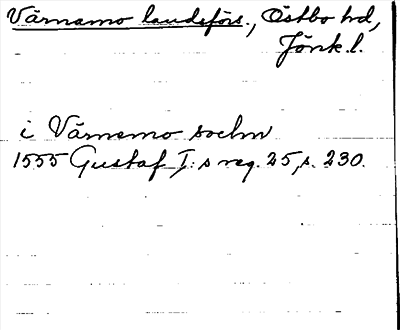 Värnamo landsförs., Östbo hd,
Jönk.l.
i Värnamo sochn
1555 Gustaf I:s reg. 25, s. 230.